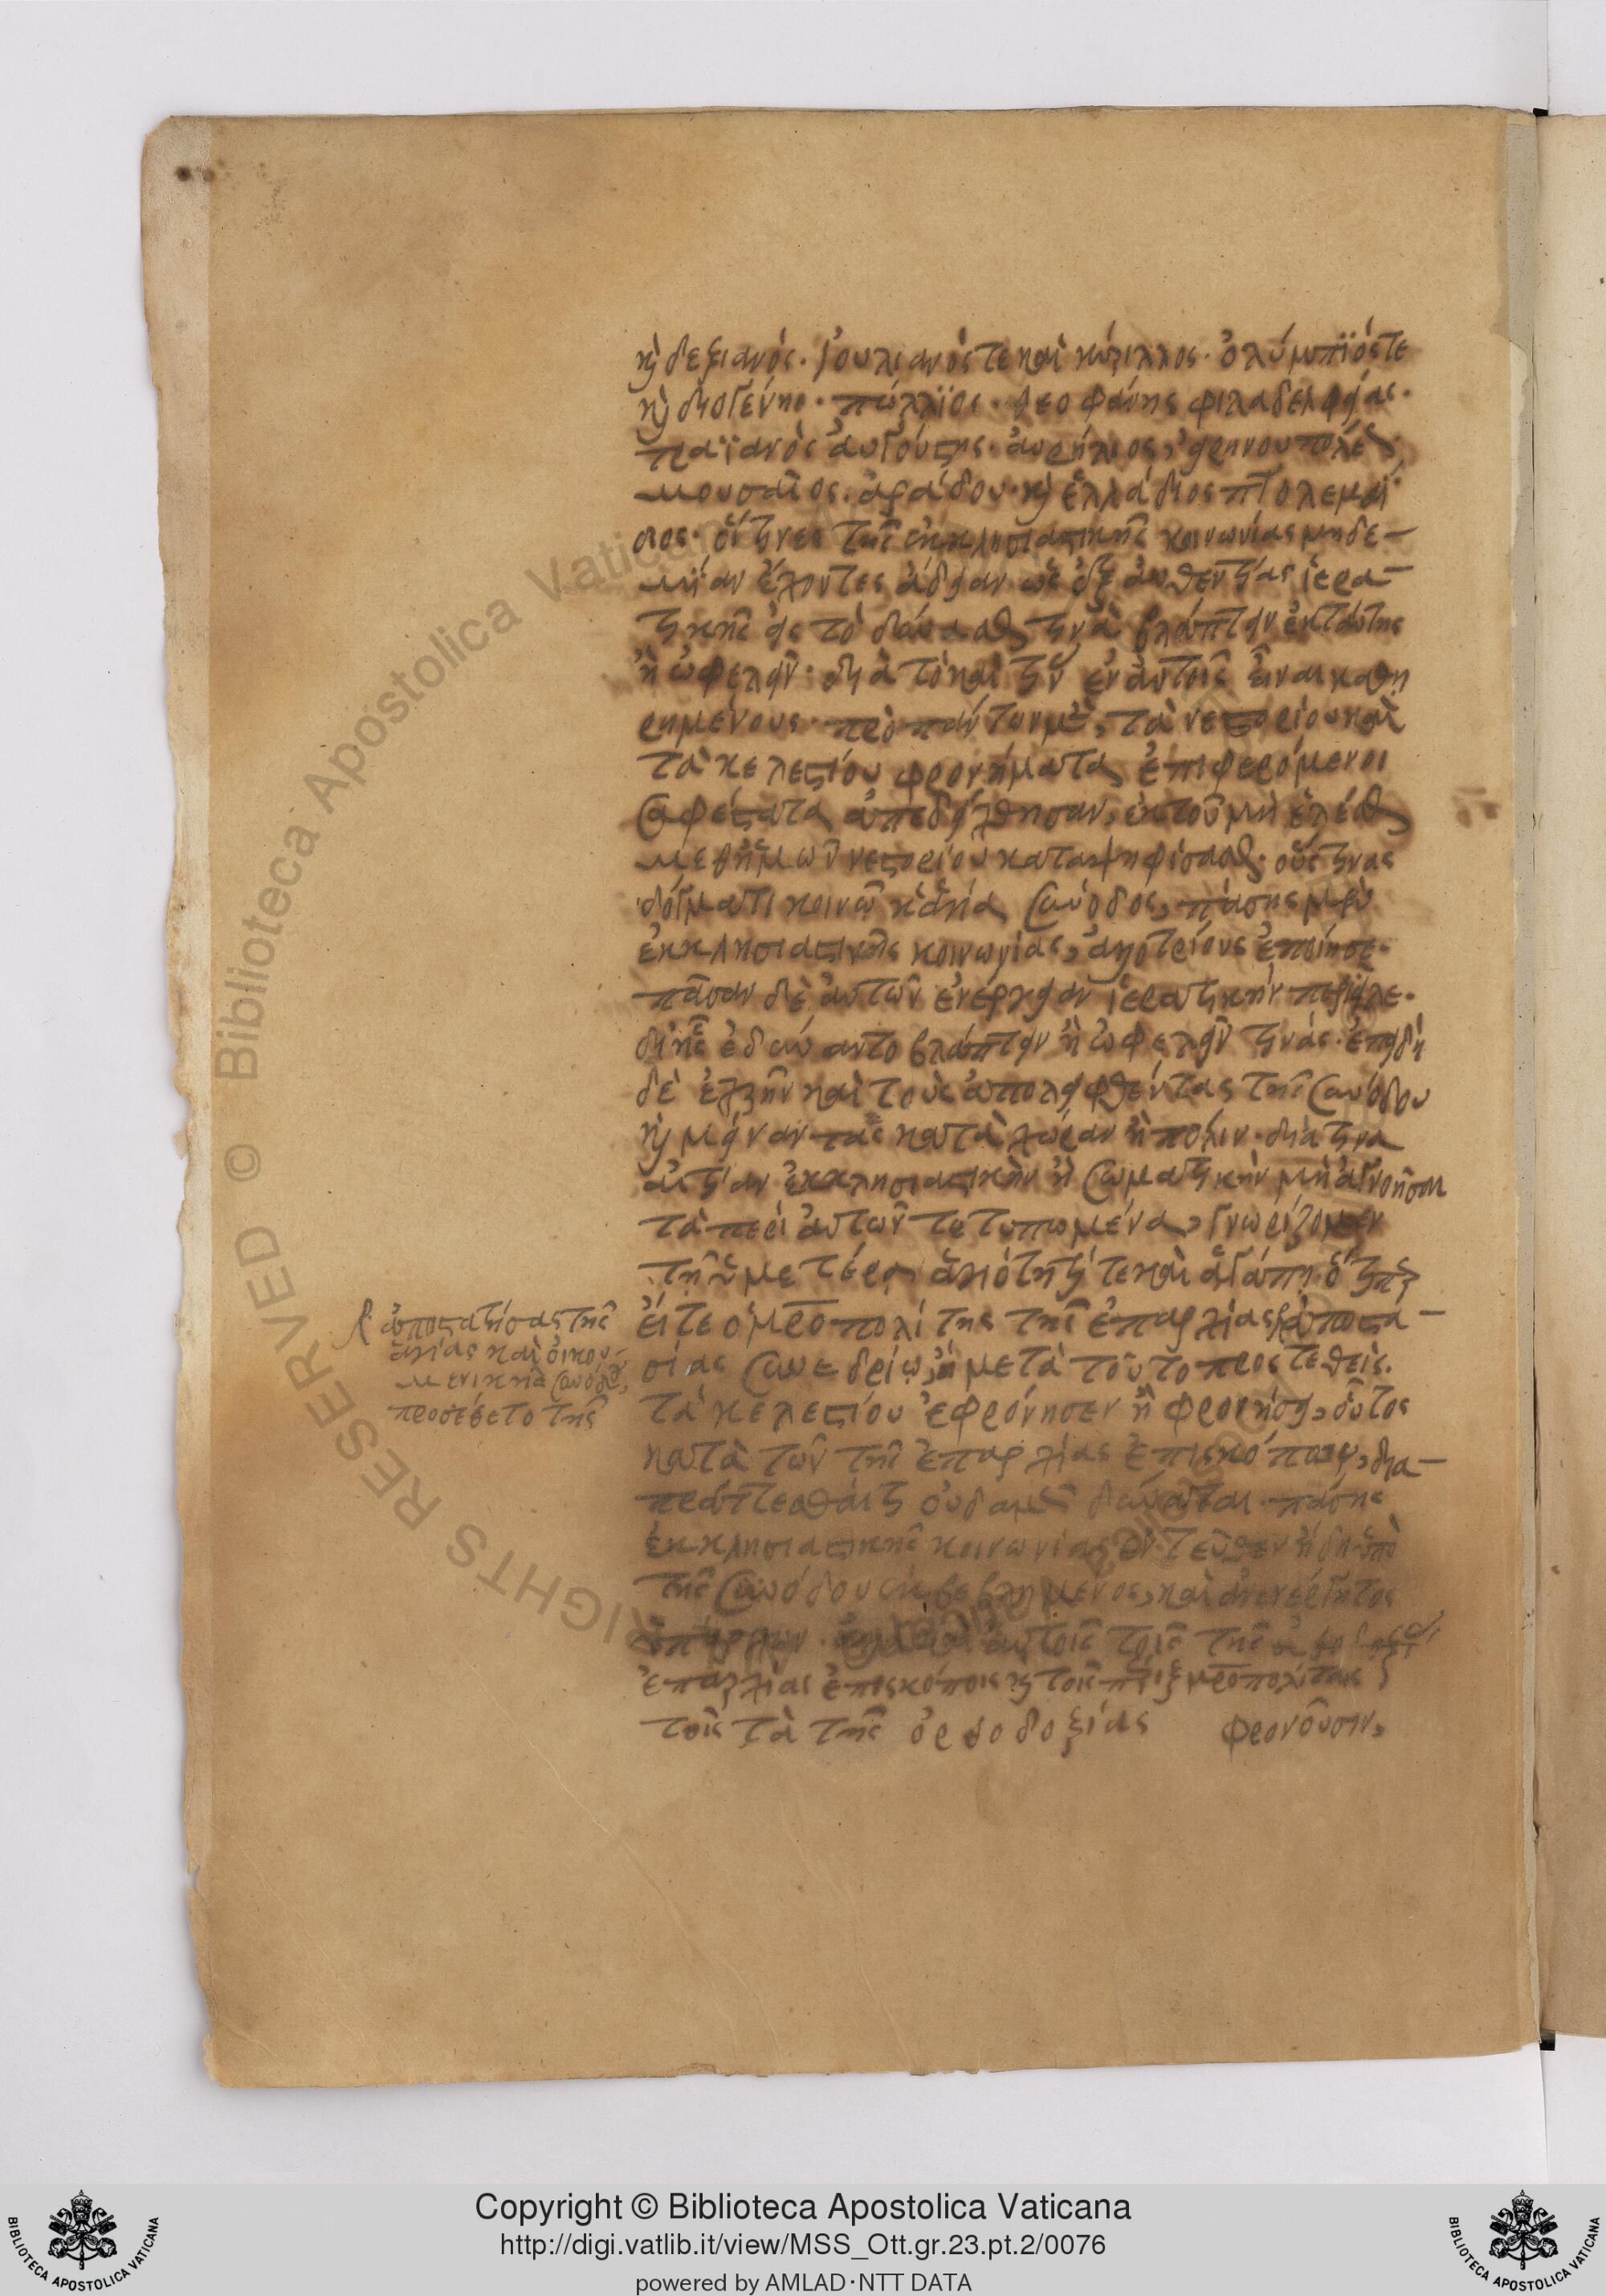 κ(αὶ) δεξιανός· ἰουλιανός τε καὶ κύριλλος· ὀλύμπϊός τε
κ(αὶ) διογένης· πώλλϊος· θεοφάνης φιλαδελφείας·
τραϊανὸς ἀυγούστης· ἀυρήλιος, εἰρηνουπόλεως·
μουσαῖος· ἀράδου· κ(αὶ) ἑλλάδιος πτολεμαί
δος· οἵτινες τῆς ἐκκλησιαστικῆς κοινωνίας μηδε-
μϊαν ἔχοντες ἄδειαν ὡς ἐξ ἀυθεντίας ἱερα-
τικῆς εἰς τὸ δύνασθαι τινὰ βλάπτειν ἐκ ταύτης
ἢ ὠφελεῖν· διὰ τὸ καί τιν ἐν ἀυτοῖς εἶναι καθη
ρημένους· πρὸ πάντων μὲν, τὰ νεστορίου καὶ
τὰ κελεστίου φρονήματα ἐπιφερόμενοι
σαφέστατα ἀπεδείχθησαν, ἐκ τοῦ μὴ ἑλέσθαι
μεθ' ἡμῶν νεστορίου καταψηφίσασθαι· οὕς τινας
δόγματι κοινῷ ἡ ἁγία σύνοδος, πάσης μὲν
ἐκκλησιαστικῆς κοινωνίας, ἀλλοτρίους ἐποίησε·
πᾶσαν δὲ ἀυτῶν ἐνέργειαν ἱερατικὴν περιεῖλε·
δι' ἧς ἐδύναντο βλάπτειν ἢ ὠφελεῖν τινάς· ἐπειδὴ
δὲ ἐχρῆν καὶ τοὺς ἀπολειφθέντας τῆς συνόδου
κ(αὶ) μείναντας κατὰ χώραν ἢ πόλιν· διά τινα
αἰτίαν ἐκκλησιαστικὴν ἢ σωματικὴν μὴ ἀγνοῆσαι
τὰ περὶ ἀυτῶν τετυπωμένα, γνωρίζομεν
τῇ ὑμετέρᾳ ἁγιότητί τε καὶ ἀγάπῃ ὅτι περ
εἴτε ὁ μητροπολίτης τῆς ἐπαρχίας ἀποστα-
σίας συνεδρίῳ, ἢ μετὰ τοῦτο προστεθείς·
τὰ κελεστίου ἐφρόνησεν ἢ φρονήσει, οὗτος
κατὰ τῶν τῆς ἐπαρχίας ἐπισκόπων, δια-
πράττεσθαί τι οὐδαμῶς δύναται· πάσης
ἐκκλησιαστικῆς κοινωνίας ἐντεῦθεν ἤδη ὑπὸ
τῆς συνόδου ἐκβεβλημένος, καὶ ἀνενέργητος
ὑπάρχων· ἀλλὰ καὶ ἀυτοῖς τοῖς τῆς
ἐπαρχίας ἐπισκόποις κ(αὶ) τοῖς πέριξ μητροπολίταις
τοῖς τὰ τῆς ὀρθοδοξίας φρονοῦσιν,
ἀποστατήσας τῆς
ἁγίας καὶ οἰκου-
μενικῆς συνόδου,
προσέθετο τῆς
Copyright © Biblioteca Apostolica Vaticana
http://digi.vatlib.it/view/MSS_Ott.gr.23.pt.2/0076
powered by AMLAD·NTT DATA
BIBLIOTECA APOSTOLICA VATICANA
BIBLIOTECA APOSTOLICA VATICANA
RIGHTS RESERVED © Biblioteca Apostolica Vaticana